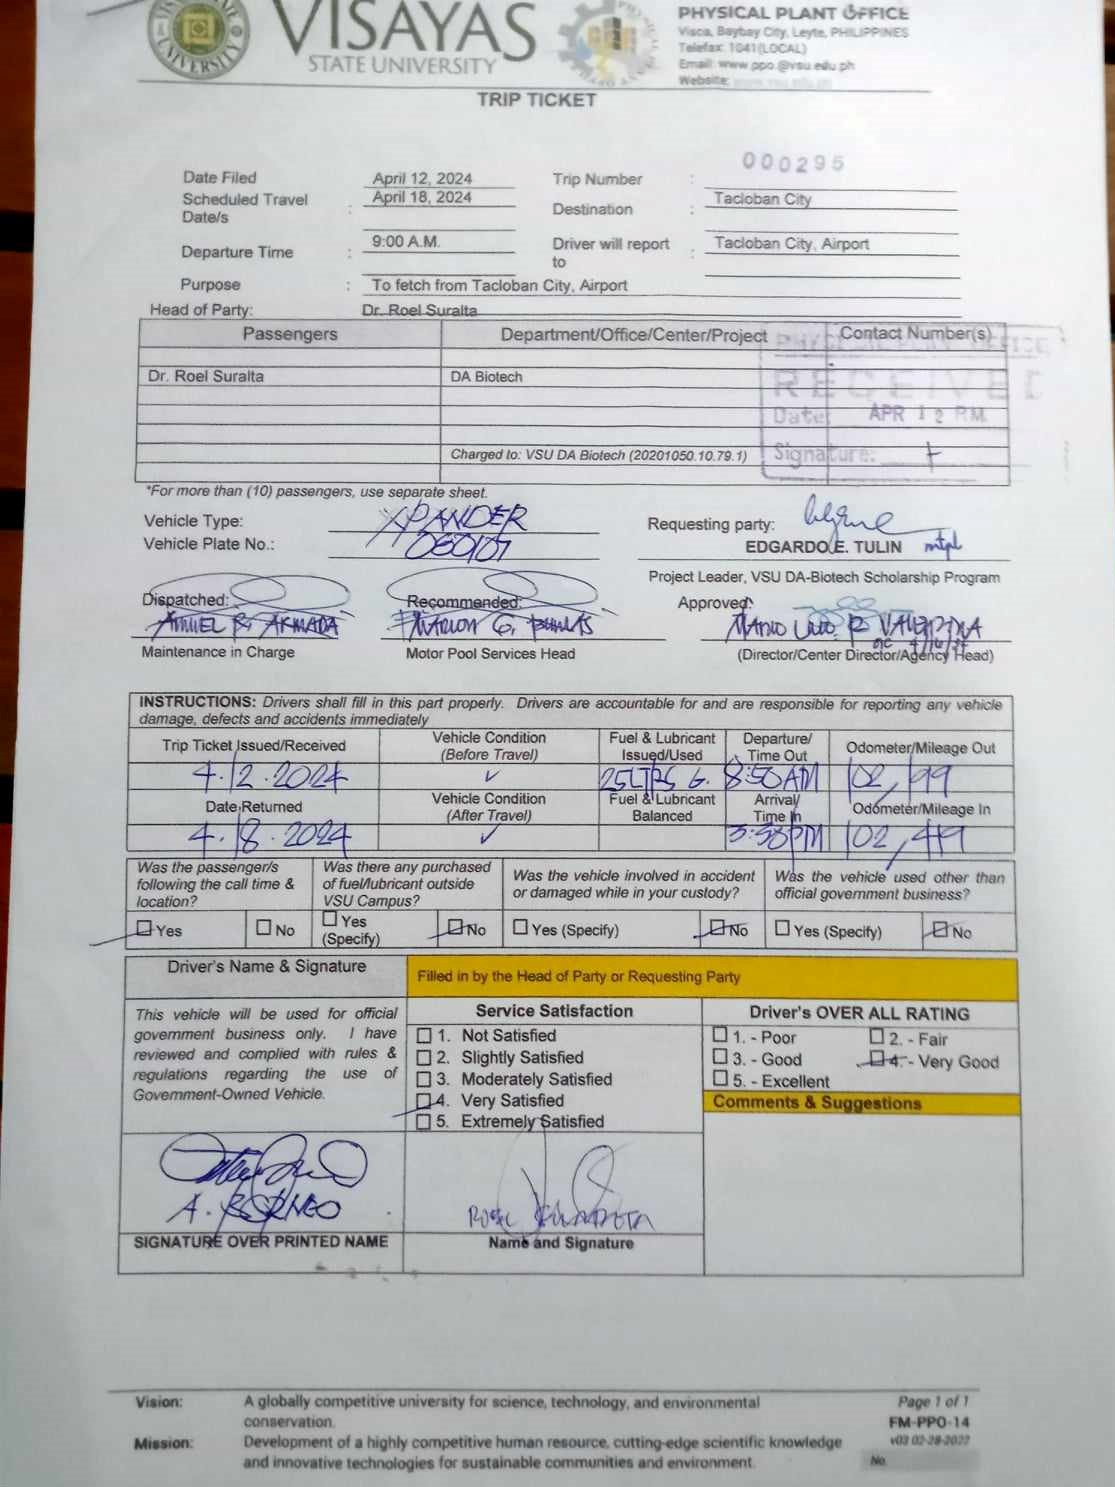 VISAYAS
STATE UNIVERSITY
PHYSICAL PLANT OFFICE
Visca, Baybay City, Leyte, PHILIPPINES
Telefax: 1041(LOCAL)
Email: www.ppo.@vsu.edu.ph
Website:
TRIP TICKET
000295
Date Filed April 12, 2024 Trip Number :
Scheduled Travel Date/s : April 18, 2024 Destination : Tacloban City
Departure Time : 9:00 A.M. Driver will report to : Tacloban City, Airport
Purpose : To fetch from Tacloban City, Airport
Head of Party: Dr. Roel Suralta
Passengers Department/Office/Center/Project Contact Number(s)
PHYSICAL PLANT OFFICE
RECEIVED
Dr. Roel Suralta DA Biotech
Date: APR 12 P.M.
Charged to: VSU DA Biotech (20201050.10.79.1) Signature:
*For more than (10) passengers, use separate sheet.
Vehicle Type: XPANDER Requesting party:
Vehicle Plate No.: EDGARDO E. TULIN
Project Leader, VSU DA-Biotech Scholarship Program
Dispatched: Recommended: Approved:
Maintenance in Charge Motor Pool Services Head (Director/Center Director/Agency Head)
INSTRUCTIONS: Drivers shall fill in this part properly. Drivers are accountable for and are responsible for reporting any vehicle
damage, defects and accidents immediately
Trip Ticket Issued/Received Vehicle Condition (Before Travel) Fuel & Lubricant Issued/Used Departure/ Time Out Odometer/Mileage Out
4.12.2024 ✓ 25LTRS G. 8:50AM 102,199
Date Returned Vehicle Condition (After Travel) Fuel & Lubricant Balanced Arrival/ Time In Odometer/Mileage In
4.18.2024 ✓ 3:58PM 102,419
Was the passenger/s following the call time & location? Was there any purchased of fuel/lubricant outside VSU Campus? Was the vehicle involved in accident or damaged while in your custody? Was the vehicle used other than official government business?
Yes No Yes (Specify) No Yes (Specify) No Yes (Specify) No
Driver's Name & Signature Filled in by the Head of Party or Requesting Party
This vehicle will be used for official
government business only. I have
reviewed and complied with rules &
regulations regarding the use of
Government-Owned Vehicle.
Service Satisfaction
1. Not Satisfied
2. Slightly Satisfied
3. Moderately Satisfied
4. Very Satisfied
5. Extremely Satisfied
Driver's OVER ALL RATING
1. - Poor 2. - Fair
3. - Good 4. - Very Good
5. - Excellent
Comments & Suggestions
A. BORNEO
SIGNATURE OVER PRINTED NAME Name and Signature
Vision: A globally competitive university for science, technology, and environmental
conservation.
Mission: Development of a highly competitive human resource, cutting-edge scientific knowledge
and innovative technologies for sustainable communities and environment.
Page 1 of 1
FM-PPO-14
v03 02-28-2022
No.